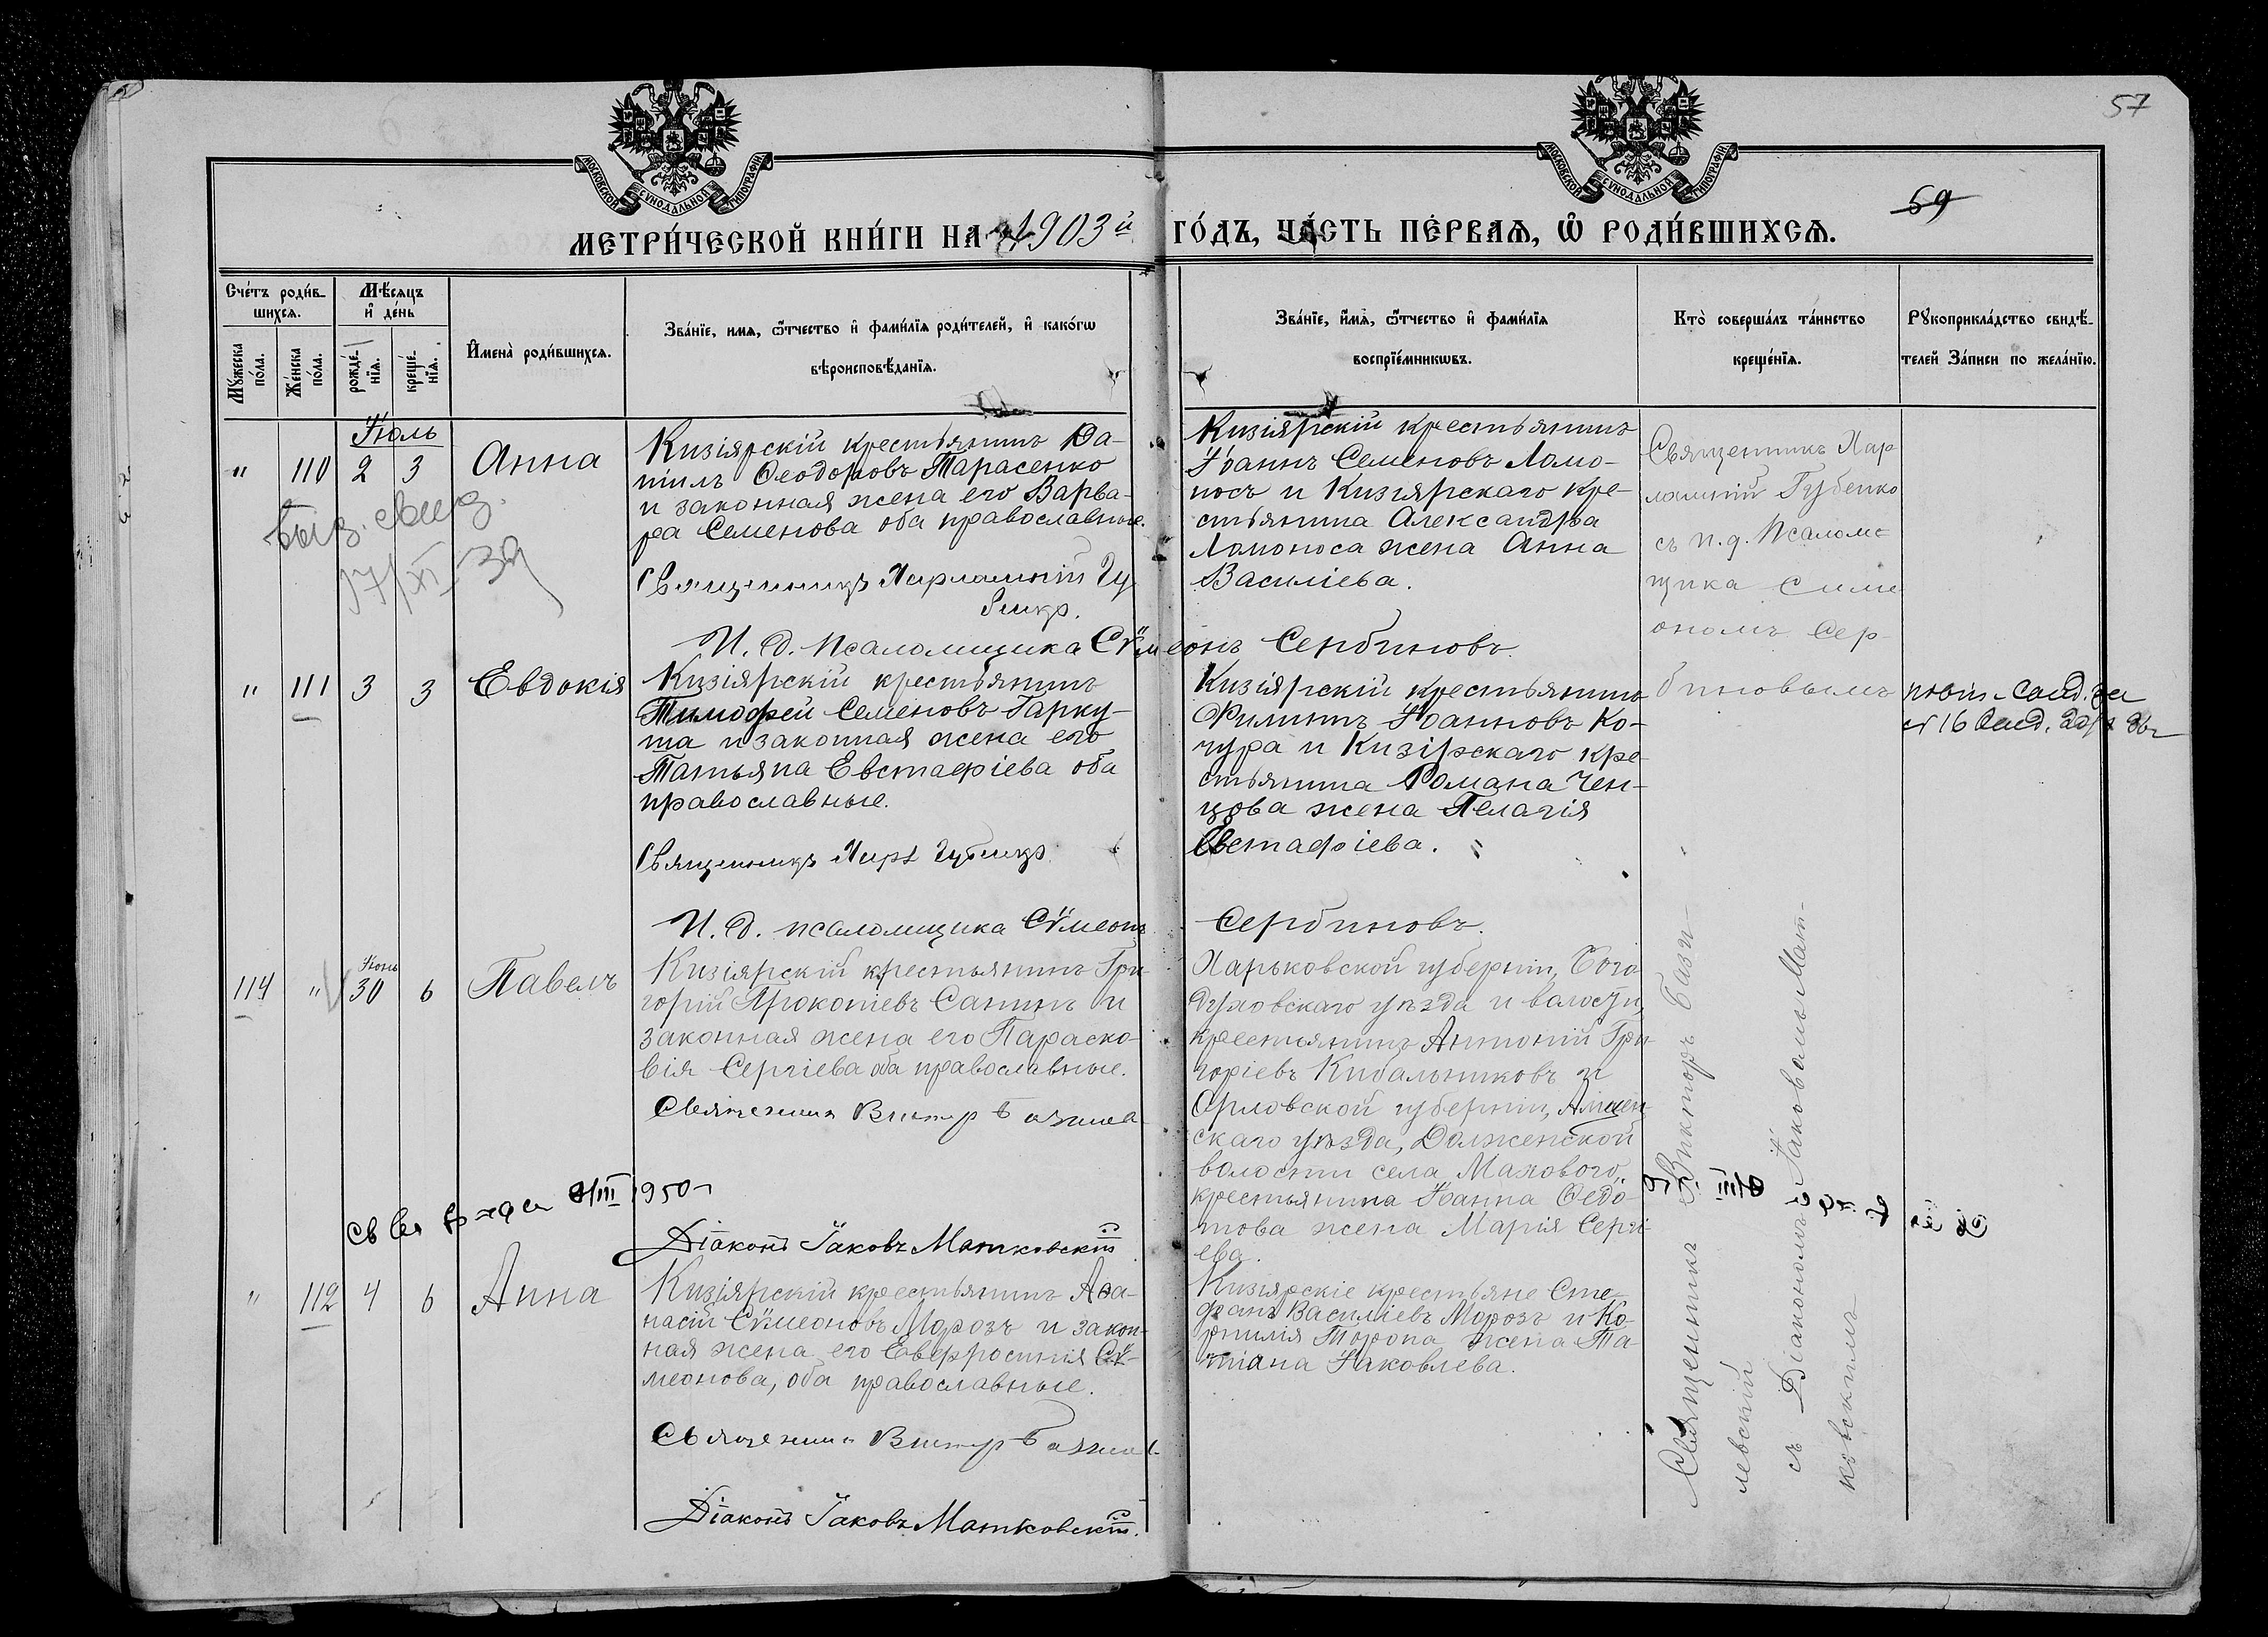 57
59
МОСКОВСКОЙ СѴНОДАЛЬНОЙ ТИПОГРАФІИ
МОСКОВСКОЙ СѴНОДАЛЬНОЙ ТИПОГРАФІИ
МЕТРИ́ЧЕСКОЙ КНИ́ГИ НА 1903й ГО́ДЪ, ЧА́СТЬ ПЕ́РВАѦ, Ѡ҆ РОДИ́ВШИХСѦ.
Сче́тъ роди́в-
шихсѧ.
Мѹжеска по́ла.
Же́нска по́ла.
Мѣ́сѧцъ
и҆ де́нь
рожде́-
нїѧ.
креще́-
нїѧ.
И҆мена̀ роди́вшихсѧ.
Зва́нїе, имѧ, ѻ҆́тчество и҆ фами́лїѧ роди́телей, и҆ како́гѡ
вѣроисповѣ́данїѧ.
Зва́нїе, и҆́мѧ, ѻ҆́тчество и҆ фами́лїѧ
воспрїе́мникѡвъ.
Кто̀ соверша́лъ та́инство
креще́нїѧ.
Рѹкоприкла́дство свидѣ́-
телей За́писи по жела́нїю.
Іюль
" 110 2 3 Анна
Кизіярскій крестьянинъ Да-
ніилъ Ѳеодоровъ Тарасенко
и законная жена его Варва-
ра Семенова оба православные.
Священникъ Харлампій Гу
бенко.
И. д. псаломщика Сѵмеонъ Сербиновъ
Кизіярскій крестьянинъ
Іоаннъ Семеновъ Ломо-
носъ и Кизіярскаго кре-
стьянина Александра
Ломоноса жена Анна
Василіева.
Священникъ Хар
лампій Губенко
съ и. д. псалом-
щика Симе
ономъ Сер-
биновымъ
17/XI 39
" 111 3 3 Евдокія
Кизіярскій крестьянинъ
Тимофей Семеновъ Гарку-
ша и законная жена его
Татьяна Евстафіева оба
православные.
Священникъ Харл Губенко
И. д. псаломщика Сѵмеонъ Сербиновъ.
Кизіярскій крестьянинъ
Филиппъ Іоанновъ Ко-
чура и Кизірскаго кре-
стьянина Романа Чен-
цова жена Пелагія
Евстафіева.
114 " Іюнь 30 6 Павелъ
Кизіярскій крестьянинъ Гри-
горій Прокопіевъ Санинъ и
законная жена его Параско-
вія Сергіева оба православные.
Священникъ Виктор Базилев
Діаконъ Іаковъ Матковскій
Харьковской губерніи, Бого
духовскаго уѣзда и волости,
крестьянинъ Антоній Гри-
горіевъ Кибальниковъ и
Орловской губерніи, Мцен
скаго уѣзда, Долженской
волости села Махового,
крестьянина Іоанна Ѳедо-
това жена Марія Серги-
ева.
Священникъ Викторъ Бази-
левскій
съ Діакономъ Іаковомъ Мат-
ковскимъ
III 1950
" 112 4 6 Анна
Кизіярскій крестьянинъ Аѳа-
насій Сѵмеоновъ Морозъ и закон-
ная жена его Евфросинія Сѵ-
меонова, оба православные.
Священникъ Виктор Базилев
Діаконъ Іаковъ Матковскій.
Кизіярскіе крестьяне Сте-
фанъ Василіевъ Морозъ и Ко-
рнилія Торопа жена Та-
тіана Іаковлева.